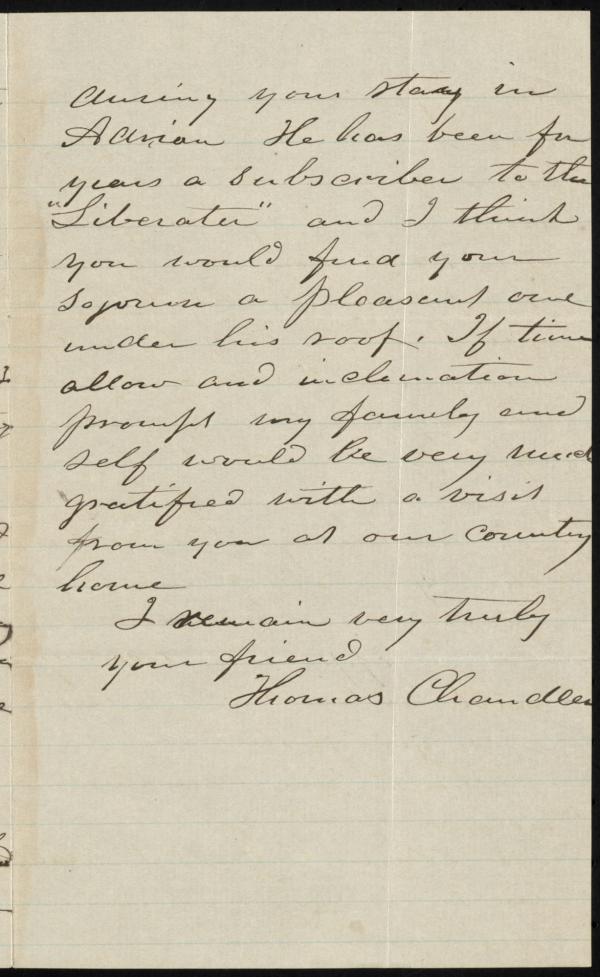 during your stay in
Adrian He has been for
years a subscriber to the
"Liberater" and I think
you would find your
sojourn a pleasant one
under his roof. If time
allow and inclination
prompt my family and
self would be very much
gratified with a visit
from you at our country
home
I remain very truly
your friend
Thomas Chandler